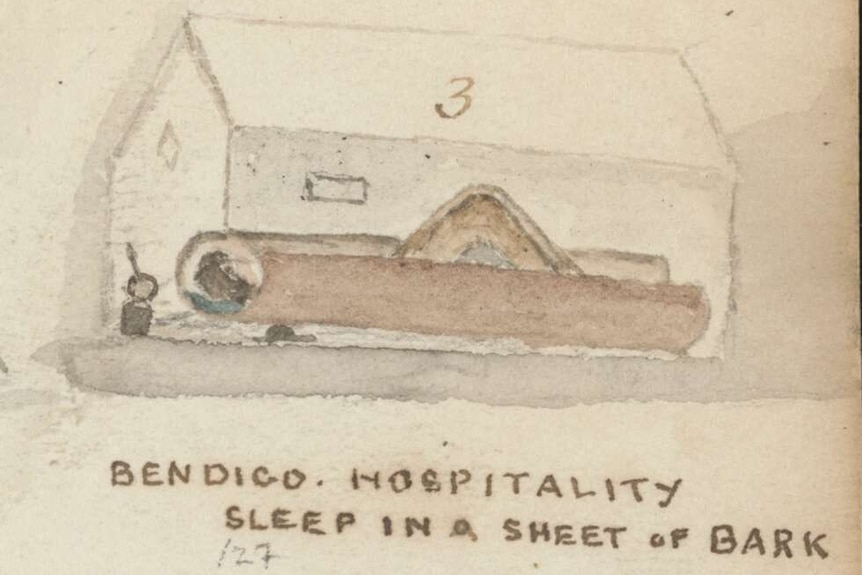 3
BENDIGO. HOSPITALITY
SLEEP IN A SHEET OF BARK
127